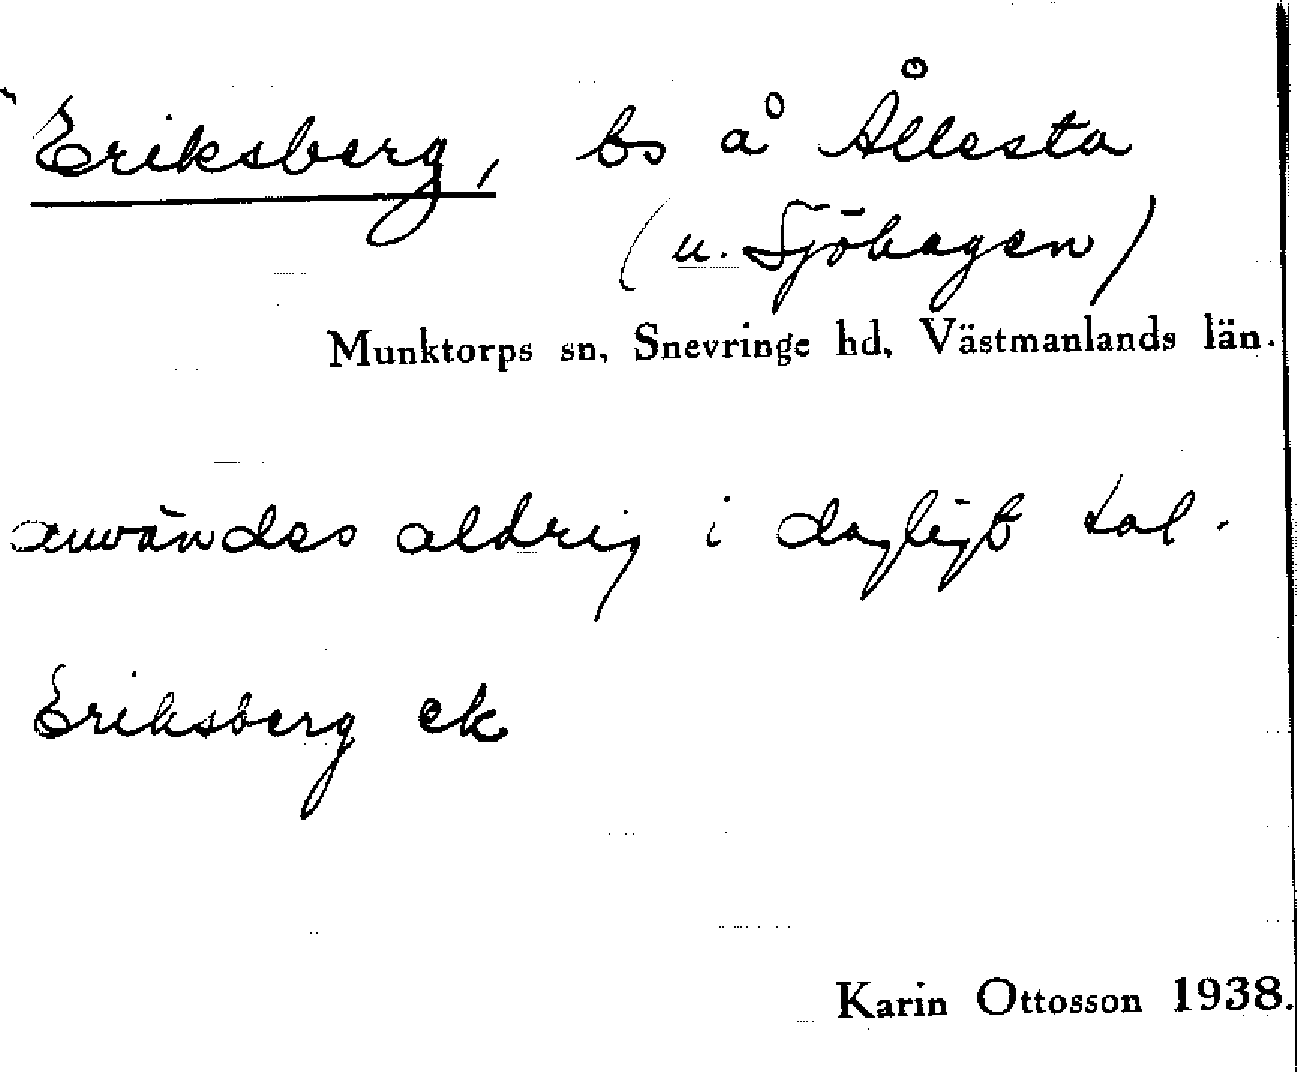 Eriksberg, bs å Ållesta
(u. Sjöhagen)
Munktorps sn, Snevringe hd, Västmanlands län.
användes aldrig i dagligt tal.
Eriksberg ek
Karin Ottosson 1938.